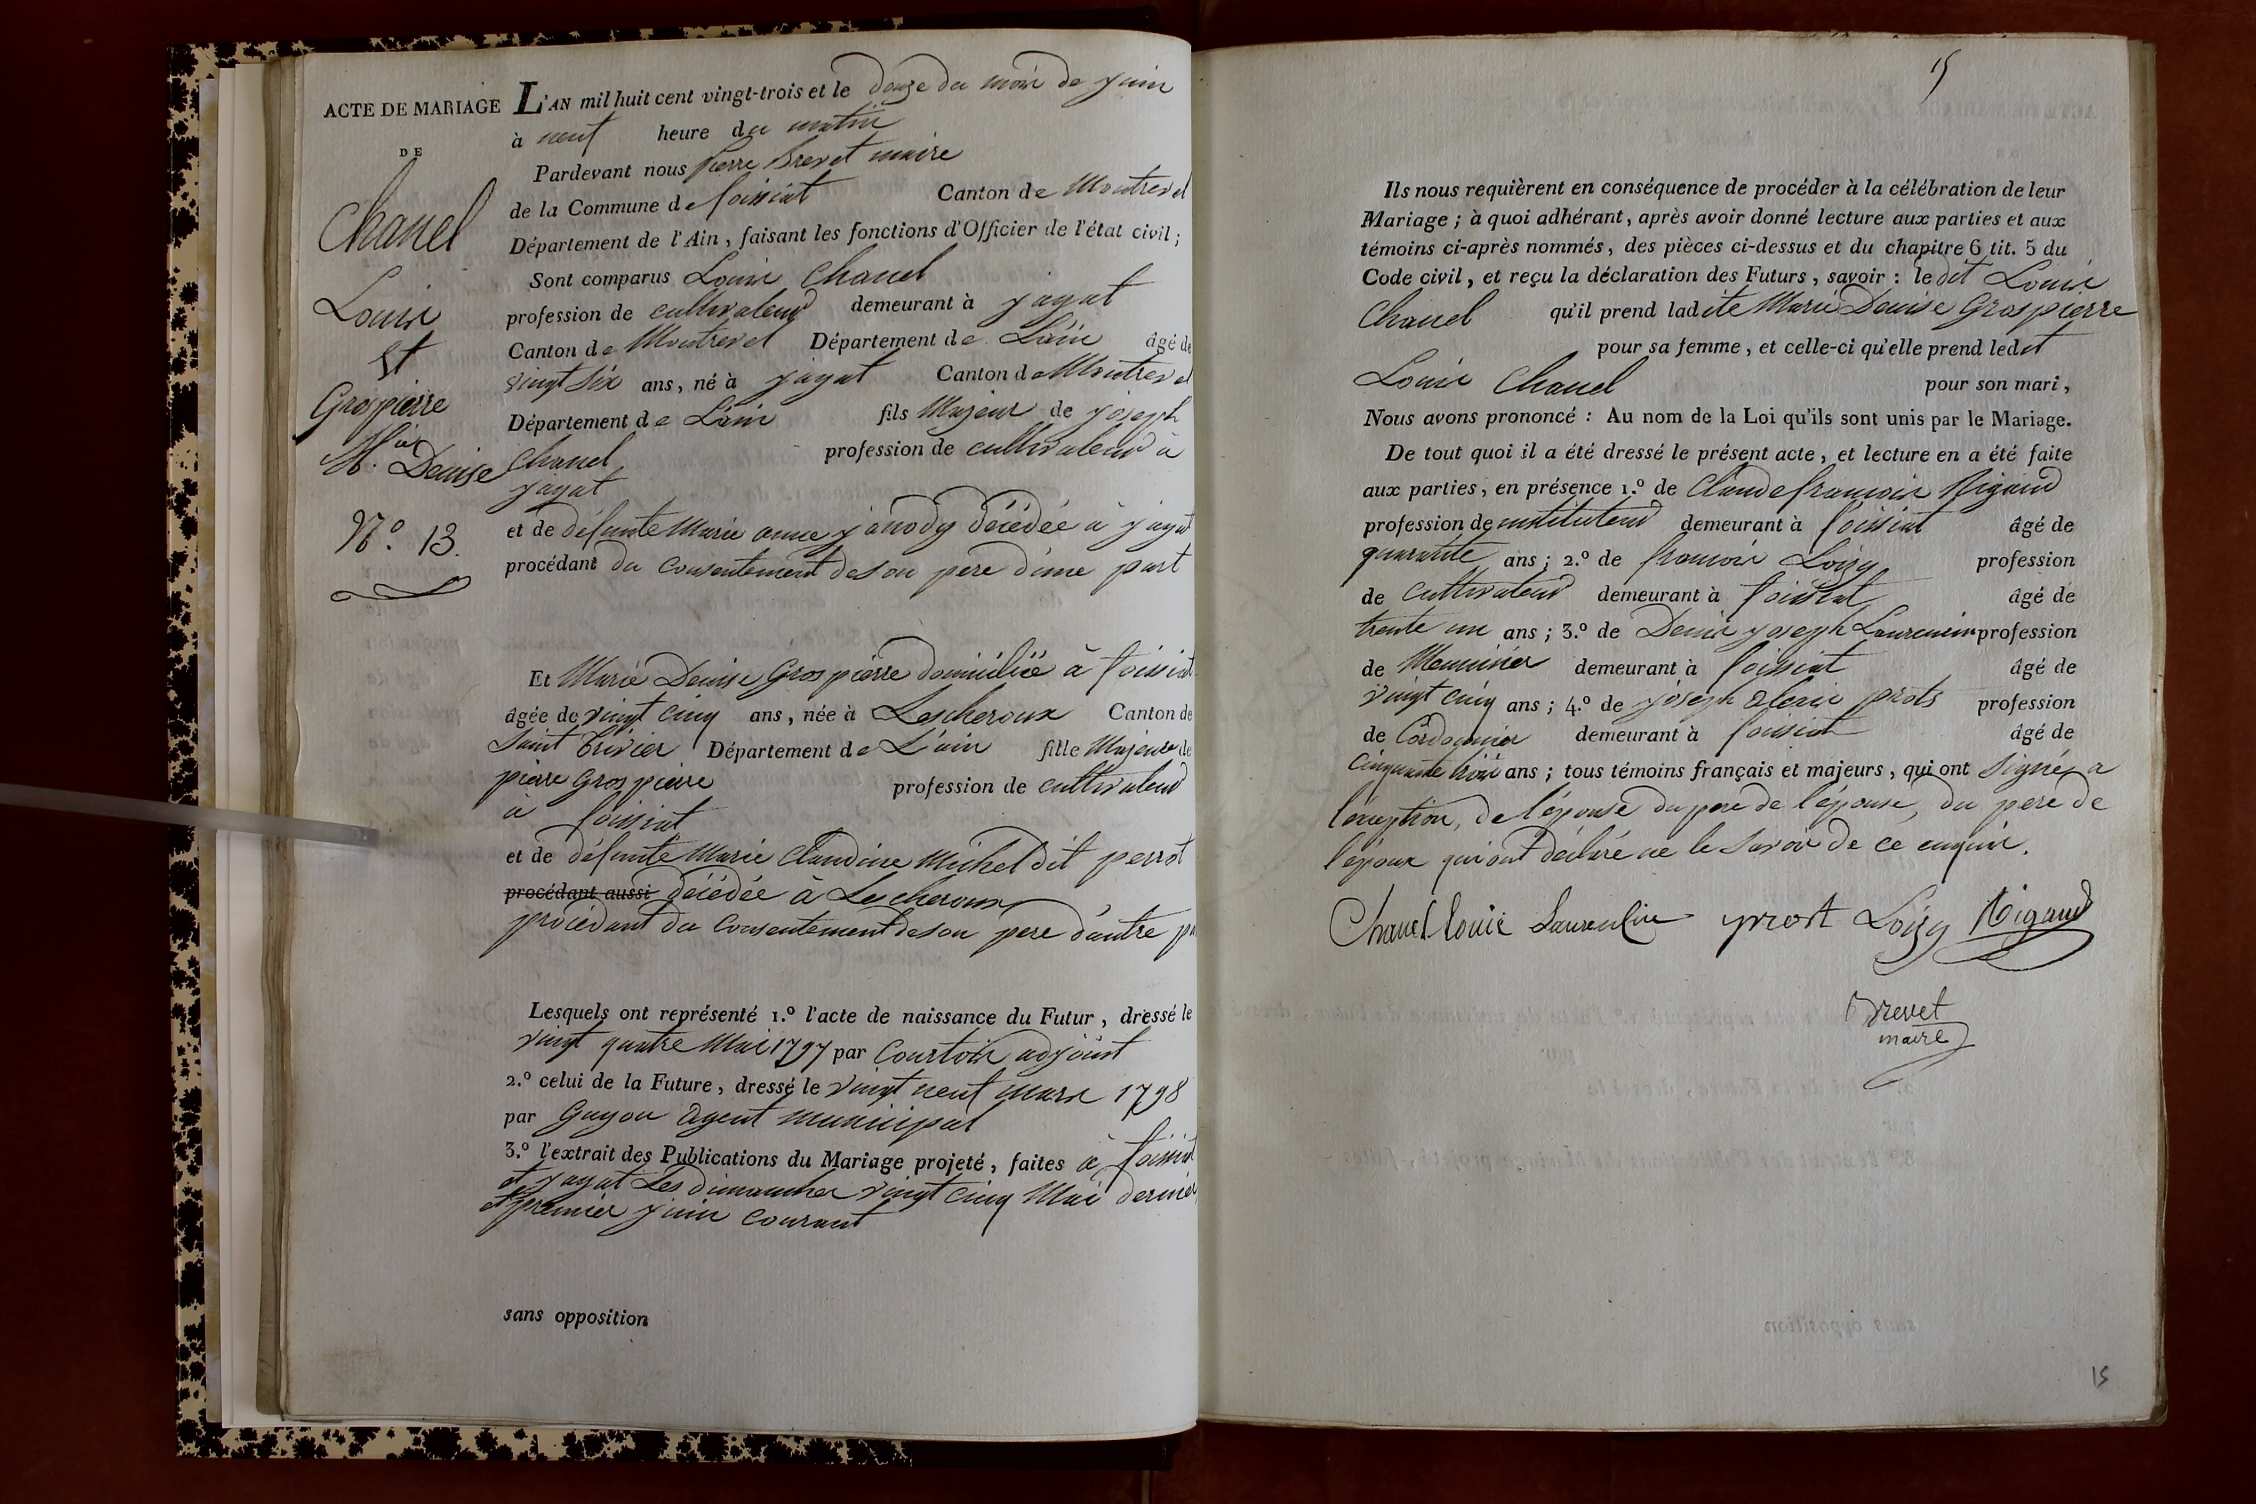 ACTE DE MARIAGE
DE
Chanel
Louis
Et
Grospierre
M.ie Denise
N.o 13.
L'AN mil huit cent vingt-trois et le douze du mois de juin
à neuf heure du matin
Pardevant nous pierre Brevet maire
de la Commune de foissiat Canton de Montrevel
Département de l'Ain, faisant les fonctions d'Officier de l'état civil;
Sont comparus Louis Chanel
profession de cultivateur demeurant à jayat
Canton de Montrevel Département de L'ain âgé de
vingt six ans, né à jayat Canton de Montrevel
Département de L'ain fils Majeur de joseph
Chanel profession de cultivateur à
jayat
et de défunte Marie anne janody décédée à jayat
procédant du consentement de son pere d'une part
Et Marie Denise Grospierre domiciliée à foissiat
âgée de vingt cinq ans, née à Lescheroux Canton de
Saint trivier Département de L'ain fille Majeure de
pierre Grospierre profession de cultivateur
à foissiat
et de défunte Marie Claudine Michel dit perrot
procédant aussi décédée à Lescheroux
procédant du consentement de son pere d'autre
Lesquels ont représenté 1.o l'acte de naissance du Futur, dressé le
vingt quatre Mai 1797 par Courtois adjoint
2.o celui de la Future, dressé le vingt neuf mars 1798
par Guyon agent municipal
3.o l'extrait des Publications du Mariage projeté, faites à foissiat
et jayat Les dimanches vingt cinq Mai dernier
et premier juin courant
sans opposition
15
Ils nous requièrent en conséquence de procéder à la célébration de leur
Mariage; à quoi adhérant, après avoir donné lecture aux parties et aux
témoins ci-après nommés, des pièces ci-dessus et du chapitre 6 tit. 5 du
Code civil, et reçu la déclaration des Futurs, savoir: le dit Louis
Chanel qu'il prend ladite Marie Denise Grospierre
pour sa femme, et celle-ci qu'elle prend ledit
Louis Chanel pour son mari,
Nous avons prononcé: Au nom de la Loi qu'ils sont unis par le Mariage.
De tout quoi il a été dressé le présent acte, et lecture en a été faite
aux parties, en présence 1.o de Claude francois Rigaud
profession de instituteur demeurant à foissiat âgé de
quarante ans; 2.o de francois Loisy profession
de cultivateur demeurant à foissiat âgé de
trente un ans; 3.o de Denis joseph Laurencin profession
de Menuisier demeurant à foissiat âgé de
vingt cinq ans; 4.o de joseph alexis prost profession
de Cordonnier demeurant à foissiat âgé de
cinquante trois ans; tous témoins français et majeurs, qui ont signé, a
l'exception, de l'épouse du pere de l'épouse, du pere de
l'époux qui ont déclaré ne le savoir de ce enquis.
Chanel louis Laurencin prost Loisy Rigaud
Brevet
maire
15